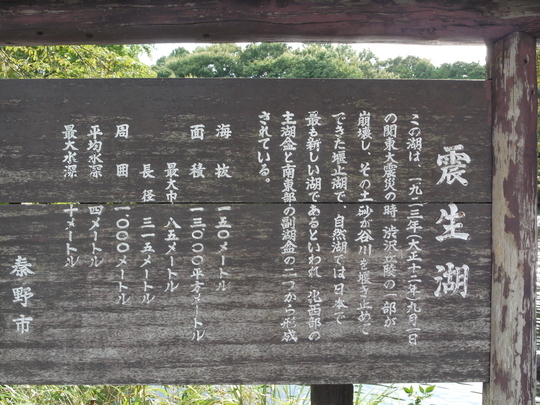 震生湖
この湖は、一九二三年(大正十二年)九月一日
の関東大震災の時、渋沢丘陵の一部が
崩壊し、その土砂が谷川を堰き止めて
できた堰止湖で、自然湖では日本で
最も新しい湖であるといわれ、北西部の
主湖盆と南東部の副湖盆の二つから形成
されている。
海抜 一五〇メートル
面積 一三〇〇〇平方メートル
最大巾 八五メートル
長径 三一五メートル
周囲 一〇〇〇メートル
平均水深 四メートル
最大水深 十メートル
秦野市